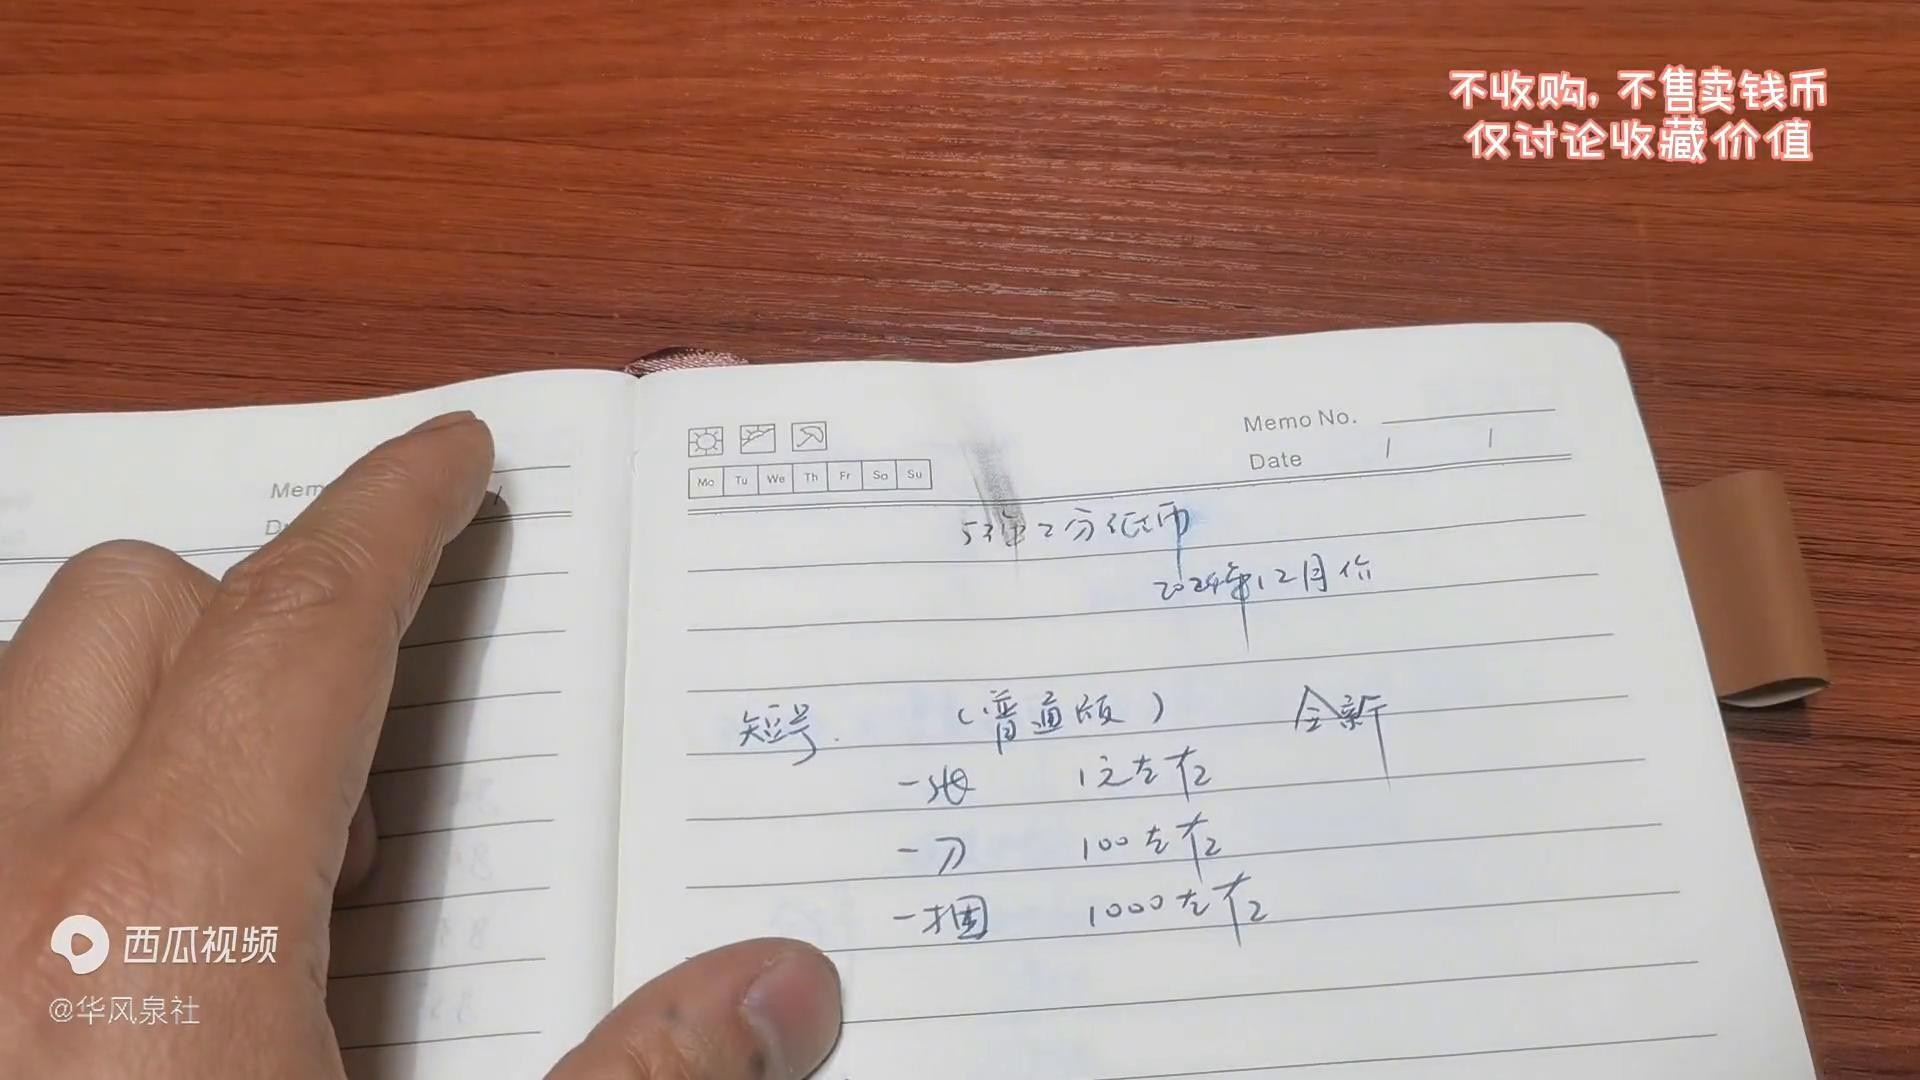 不收购，不售卖钱币
仅讨论收藏价值
Mem
Memo No.
Date
Mo Tu We Th Fr Sa Su
53年2分纸币
2024年12月价
短号. （普通版） 全新
一张 1元左右
一刀 100左右
一捆 1000左右
西瓜视频
@华风泉社